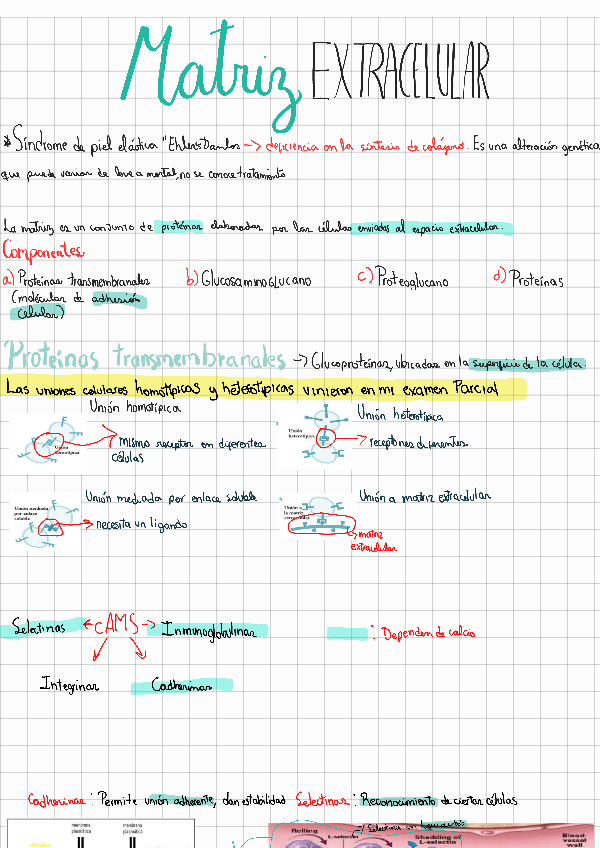 Matriz EXTRACELULAR
* Síndrome de piel elástica "Ehlers Danlos → deficiencia en la síntesis de colágeno. Es una alteración genética
que puede variar de leve a mortal, no se conoce tratamiento
La matriz es un conjunto de proteínas elaboradas por las células enviadas al espacio extracelular.
Componentes
a) Proteínas transmembranales b) Glucosaminoglucano c) Proteoglucano d) Proteínas
(moléculas de adhesión
celular)
Proteínas transmembranales → Glucoproteínas, ubicadas en la superficie de la célula
Las uniones celulares homotípicas y heterotípicas vinieron en mi examen Parcial
Unión homotípica Unión heterotípica
Unión homotípica → mismo receptor en diferentes
células
Unión heterotípica → receptores diferentes
Unión mediada por enlace soluble Unión a matriz extracelular
Unión mediada por enlace soluble → necesita un ligando
Unión a la matriz extracelular → matriz
extracelular
Selectinas ← CAMS → Inmunoglobulinas : Dependen de calcio
Integrinas Cadherinas
Cadherinas : Permite unión adherente, dan estabilidad Selectinas : Reconocimiento de ciertas células
membrana plasmática membrana plasmática
Rolling L-selectin Shedding of L-selectin Blood vessel wall